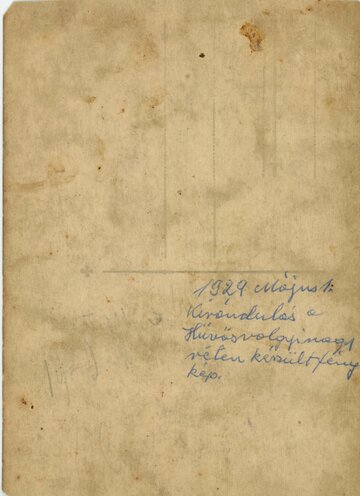 1929 Május 1.
Kirándulás a
Hüvösvölgyi nagy
réten készült fény
kép.